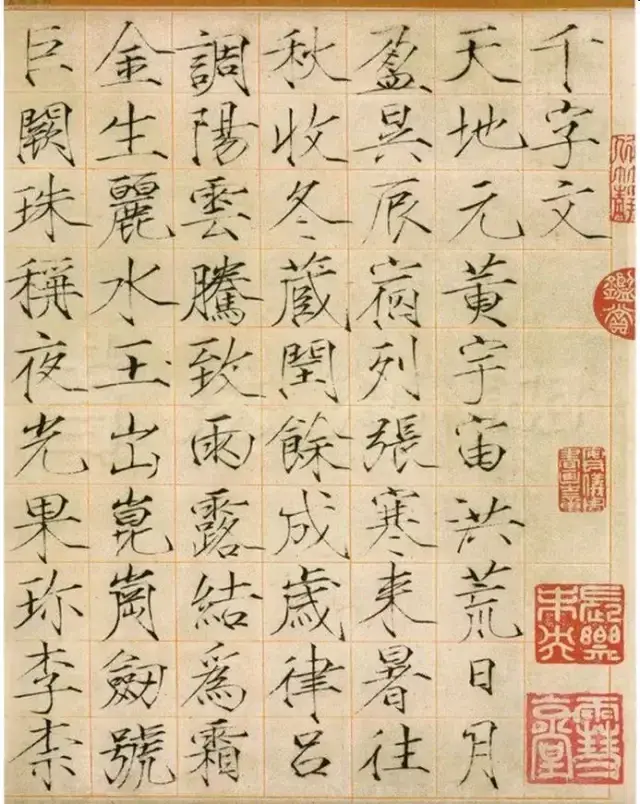 千字文
天地元黄宇宙洪荒日月
盈昃辰宿列張寒来暑往
秋收冬蔵閏餘成歲律吕
調陽雲騰致雨露結爲霜
金生麗水玉出崑崗劔號
巨闕珠稱夜光果珎李柰
鑑賞
長樂未央